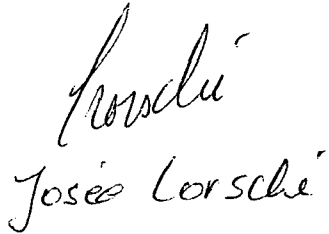 Lorsché
Josée Lorsché